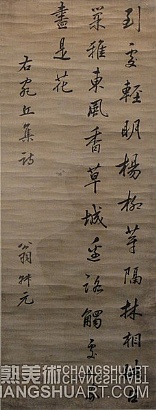 到處輕明楊柳芽隔林相
紫雅東風香草城邊路觸處
盡是花
右宛丘集詩
翁祥元
熟美術CHANGSHUART
CHANGSHUART